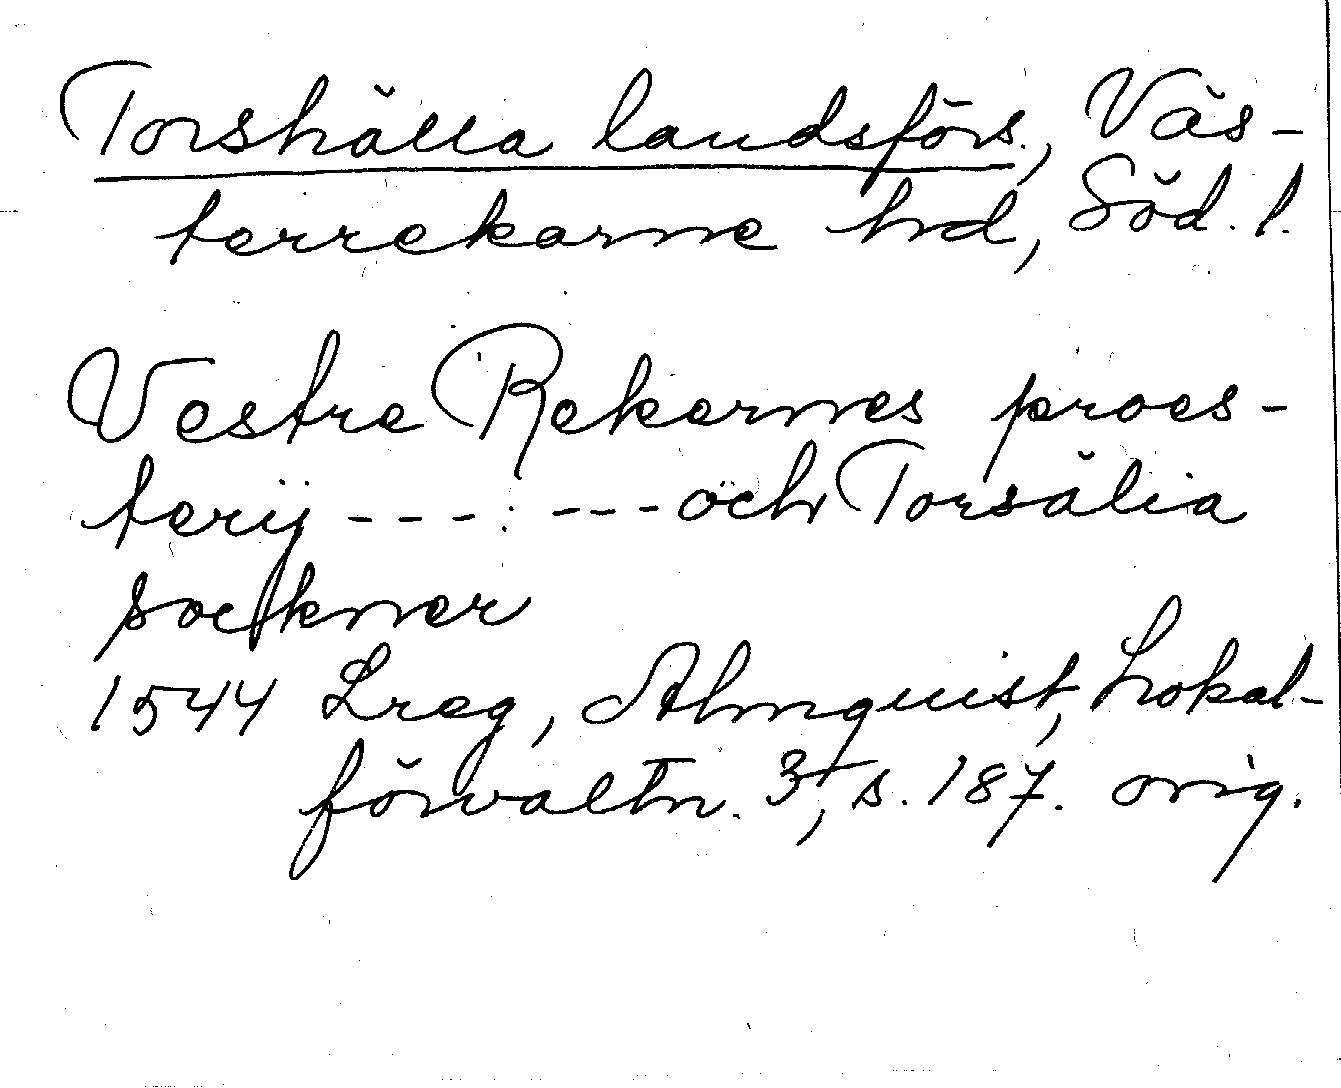 Torshälla landsförs., Väs-
terrekarne hd, Söd. l.
Vestre Rekernes proes-
terij --- : --- och Torsälia
sockner
1544 Lreg, Almquist, Lokal-
förvaltn. 3, s. 187. orig.